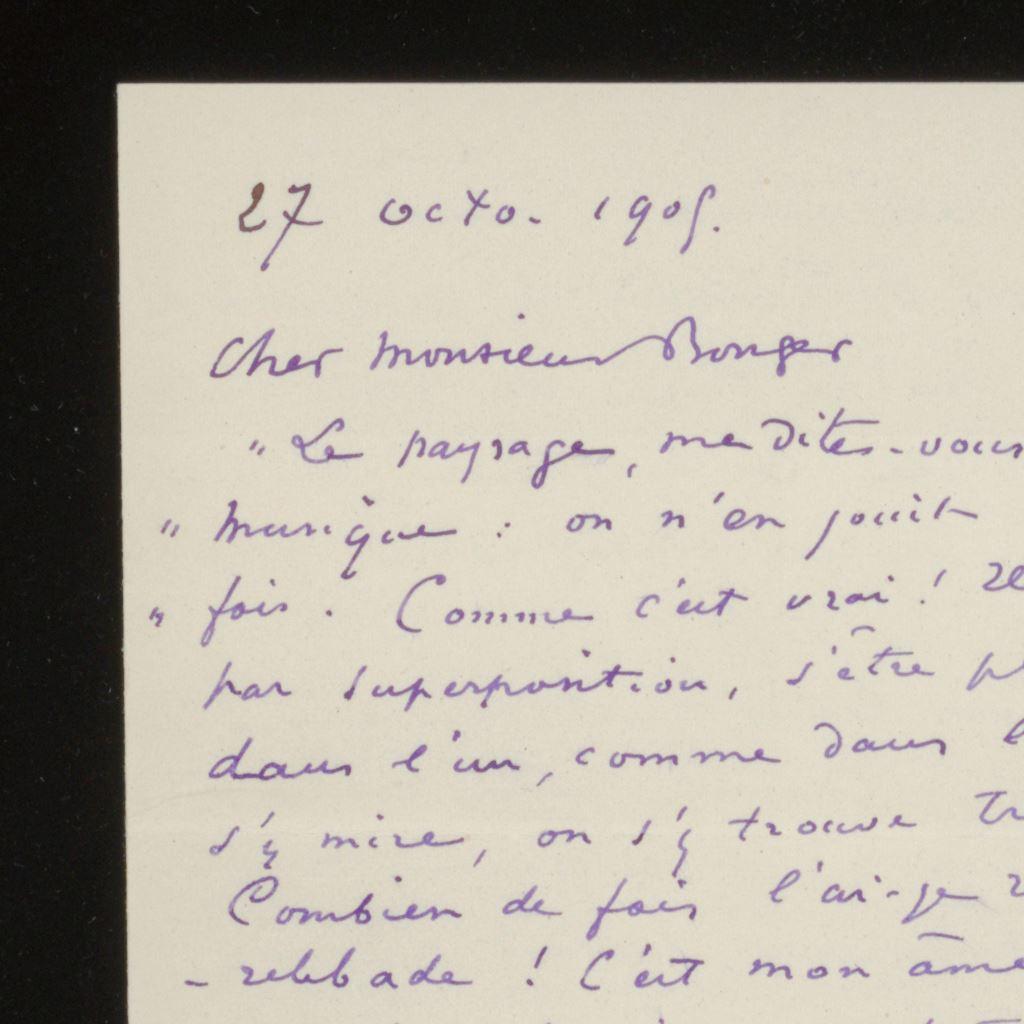 27 octo. 1905.
Cher Monsieur Bonger
" Le paysage, me dites-vous
" musique : on n'en jouit
" fois. Comme c'est vrai !
par superposition, s'être
dans l'un, comme dans l
s'y mire, on s'y trouve
Combien de fois l'ai-je
- relebade ! C'est mon âme